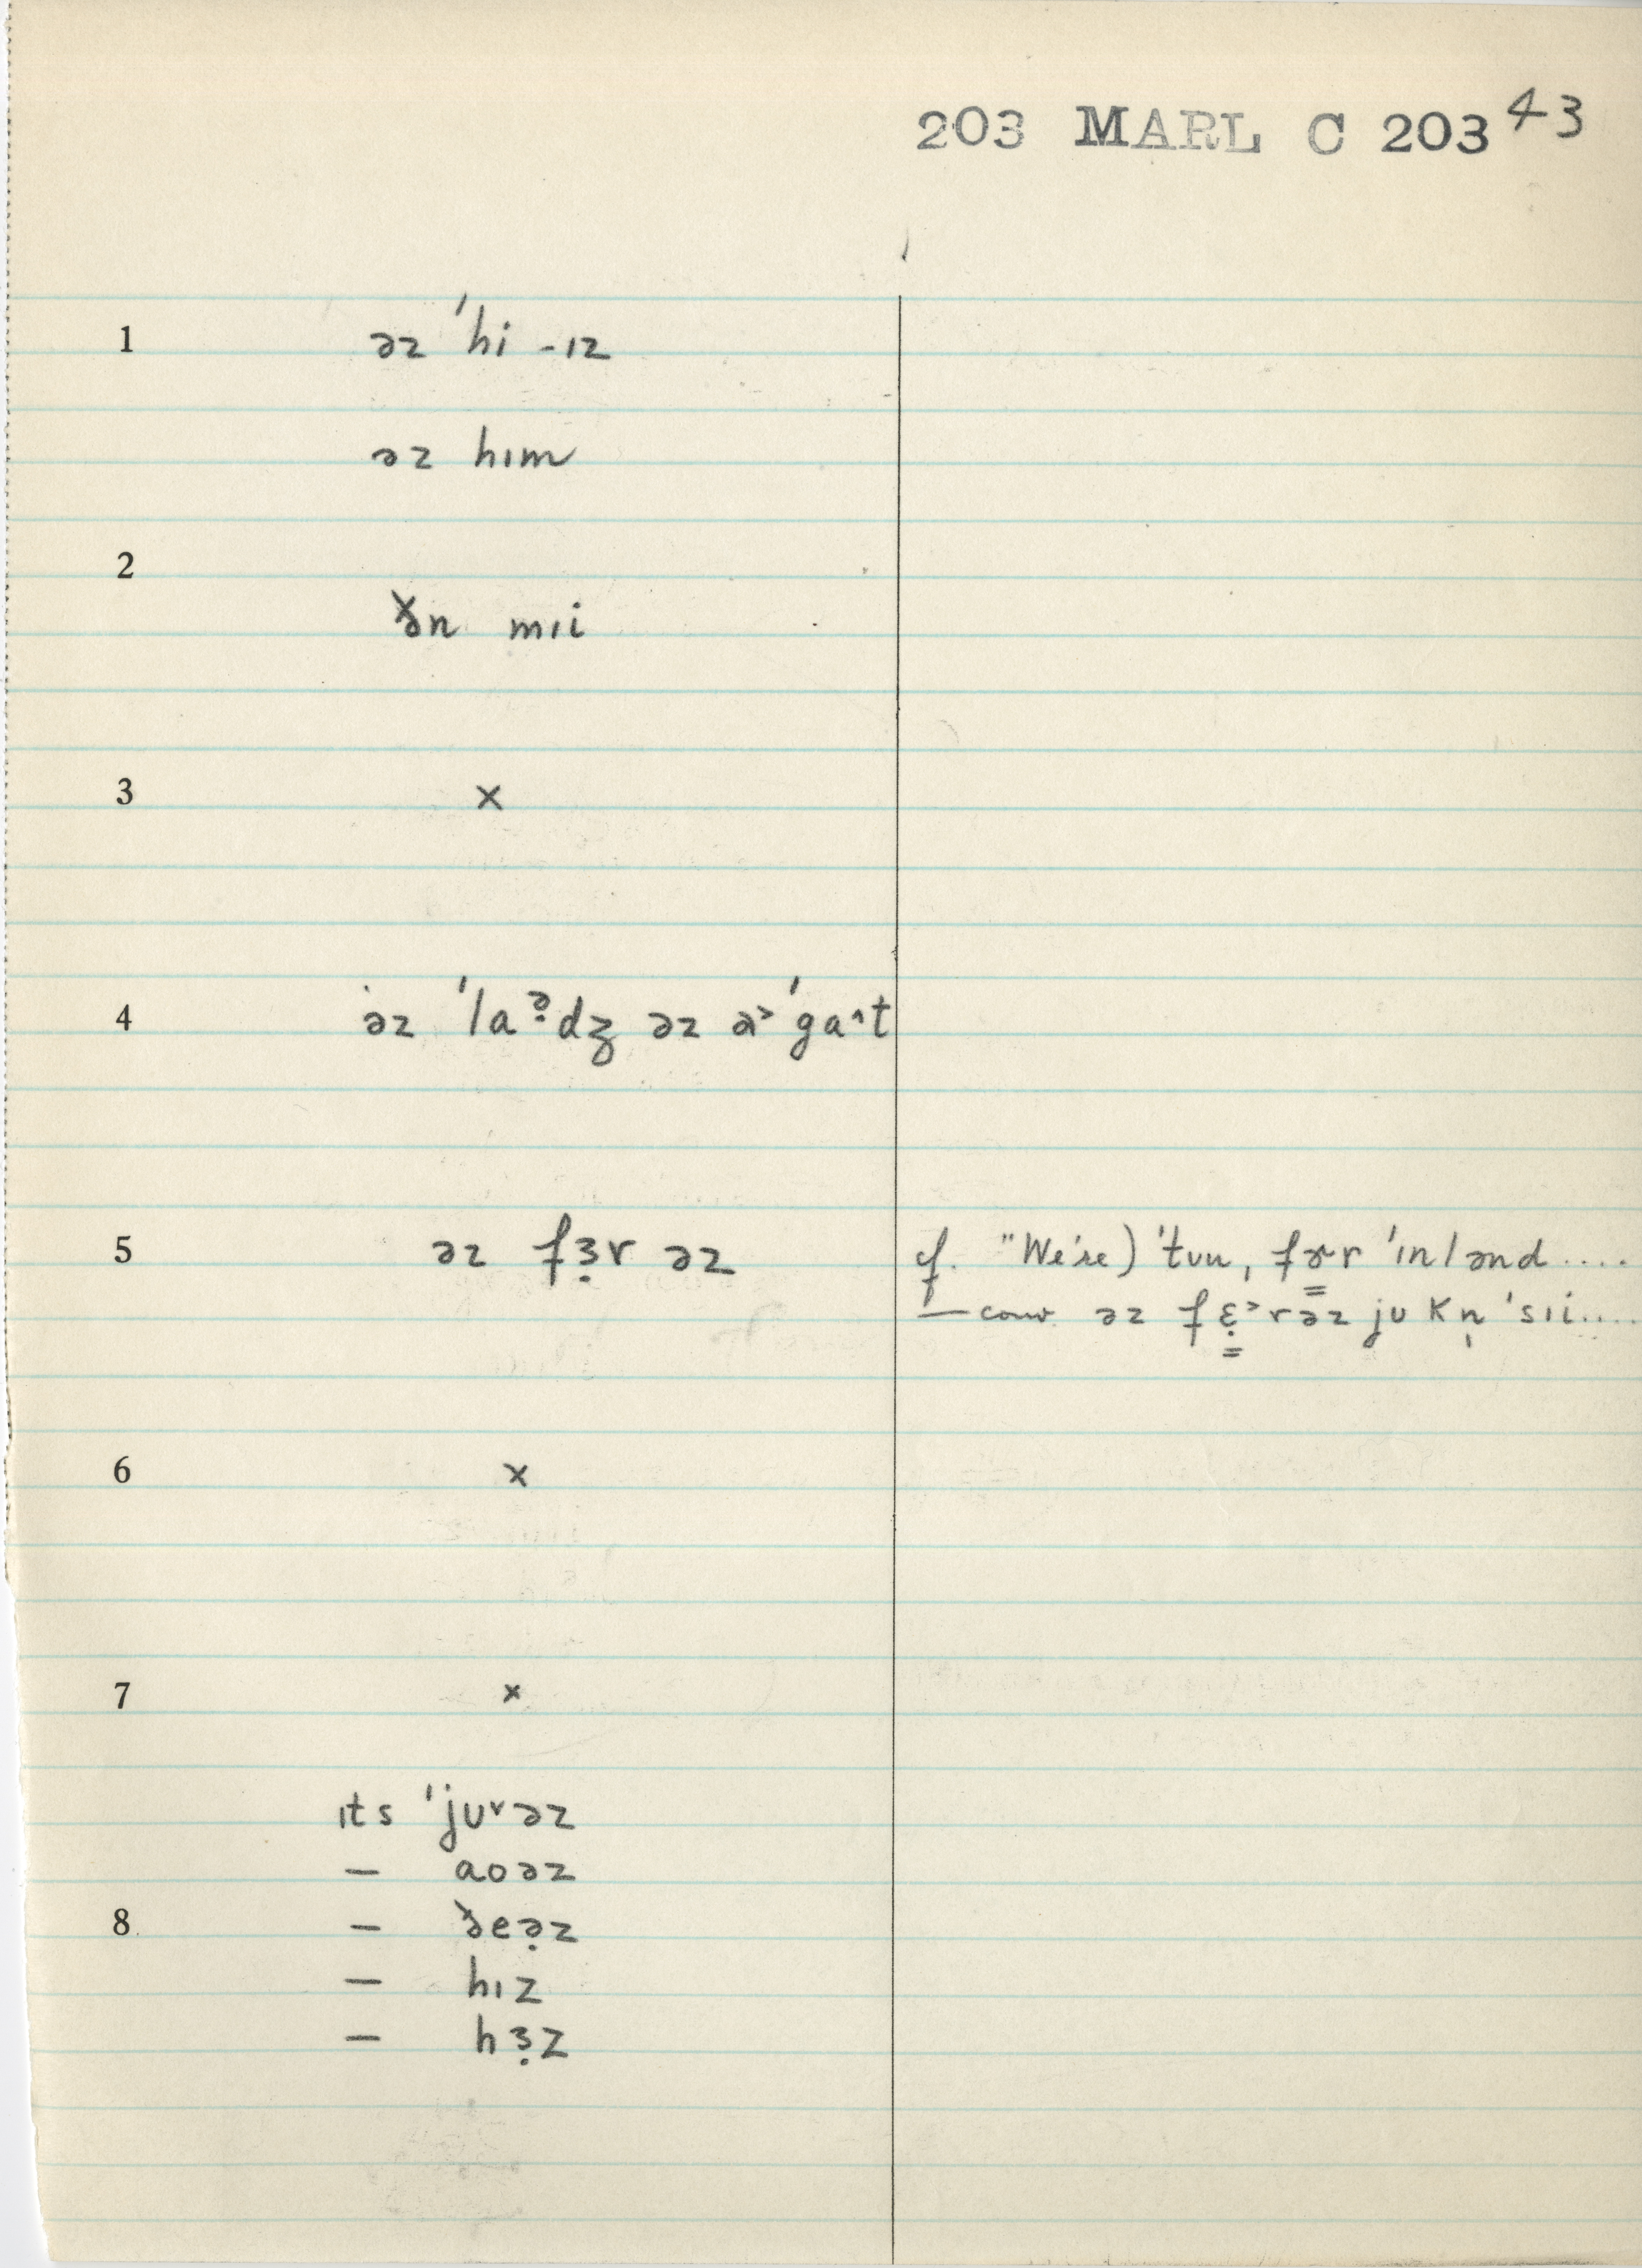 203 MARL C 203 43
1 əz ˈhi -ɪz
əz hɪm
2
ðən mɪi
3 ×
4 əz ˈlaə̣dʒ əz ə˃ ˈga˄t
5 əz fɜ̣r əz
cf. "We're) ˈtʊu, fɚr ˈɪnlənd ....
— conv. əz fɛ̣˃rəz jʊ kn̩ ˈsɪi....
6 ×
7 ×
ɪts ˈjʊ˅əz
— aoəz
8 — ðeə̣z
— hɪz
— hɜ̣z